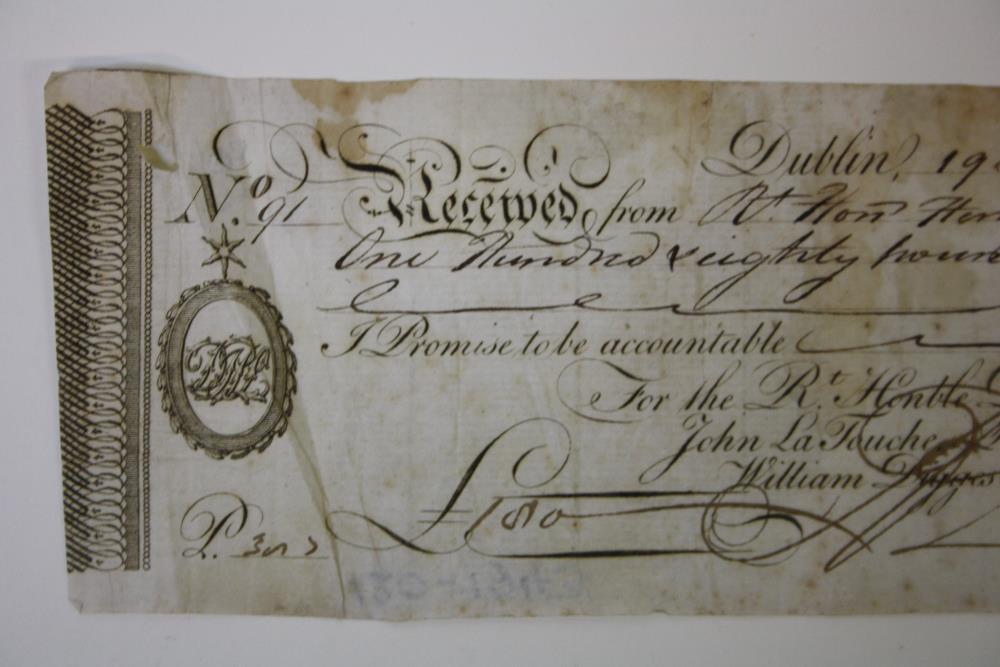 Dublin, 19
No. 91 Received from Rt. Honn Hen
One Hundred & eighty poun
I Promise to be accountable
For the Rt. Honble.
John La Touche
William Digges
£ 180
P.